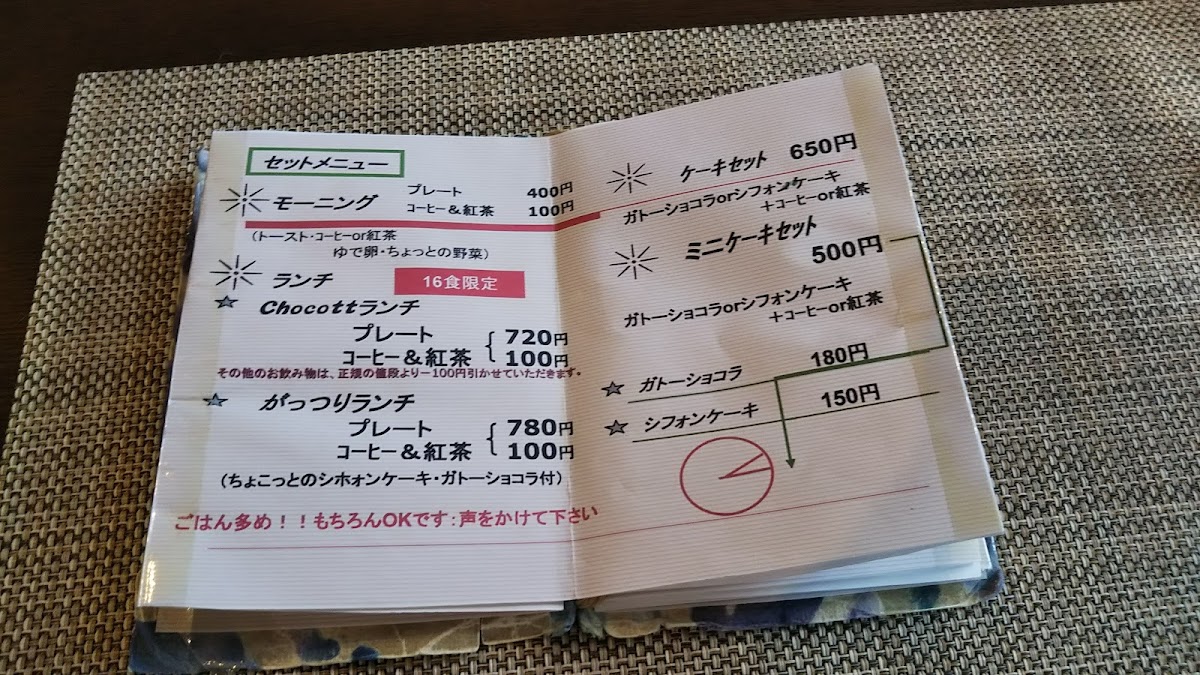 セットメニュー
モーニング
プレート 400円
コーヒー＆紅茶 100円
（トースト・コーヒーor紅茶
ゆで卵・ちょっとの野菜）
ランチ 16食限定
Chocottランチ
プレート 720円
コーヒー＆紅茶 100円
その他のお飲み物は、正規の値段より－100円引かせていただきます。
がっつりランチ
プレート 780円
コーヒー＆紅茶 100円
（ちょこっとのシホォンケーキ・ガトーショコラ付）
ごはん多め！！もちろんOKです：声をかけて下さい
ケーキセット 650円
ガトーショコラorシフォンケーキ
＋コーヒーor紅茶
ミニケーキセット
500円
ガトーショコラorシフォンケーキ
＋コーヒーor紅茶
ガトーショコラ 180円
シフォンケーキ 150円